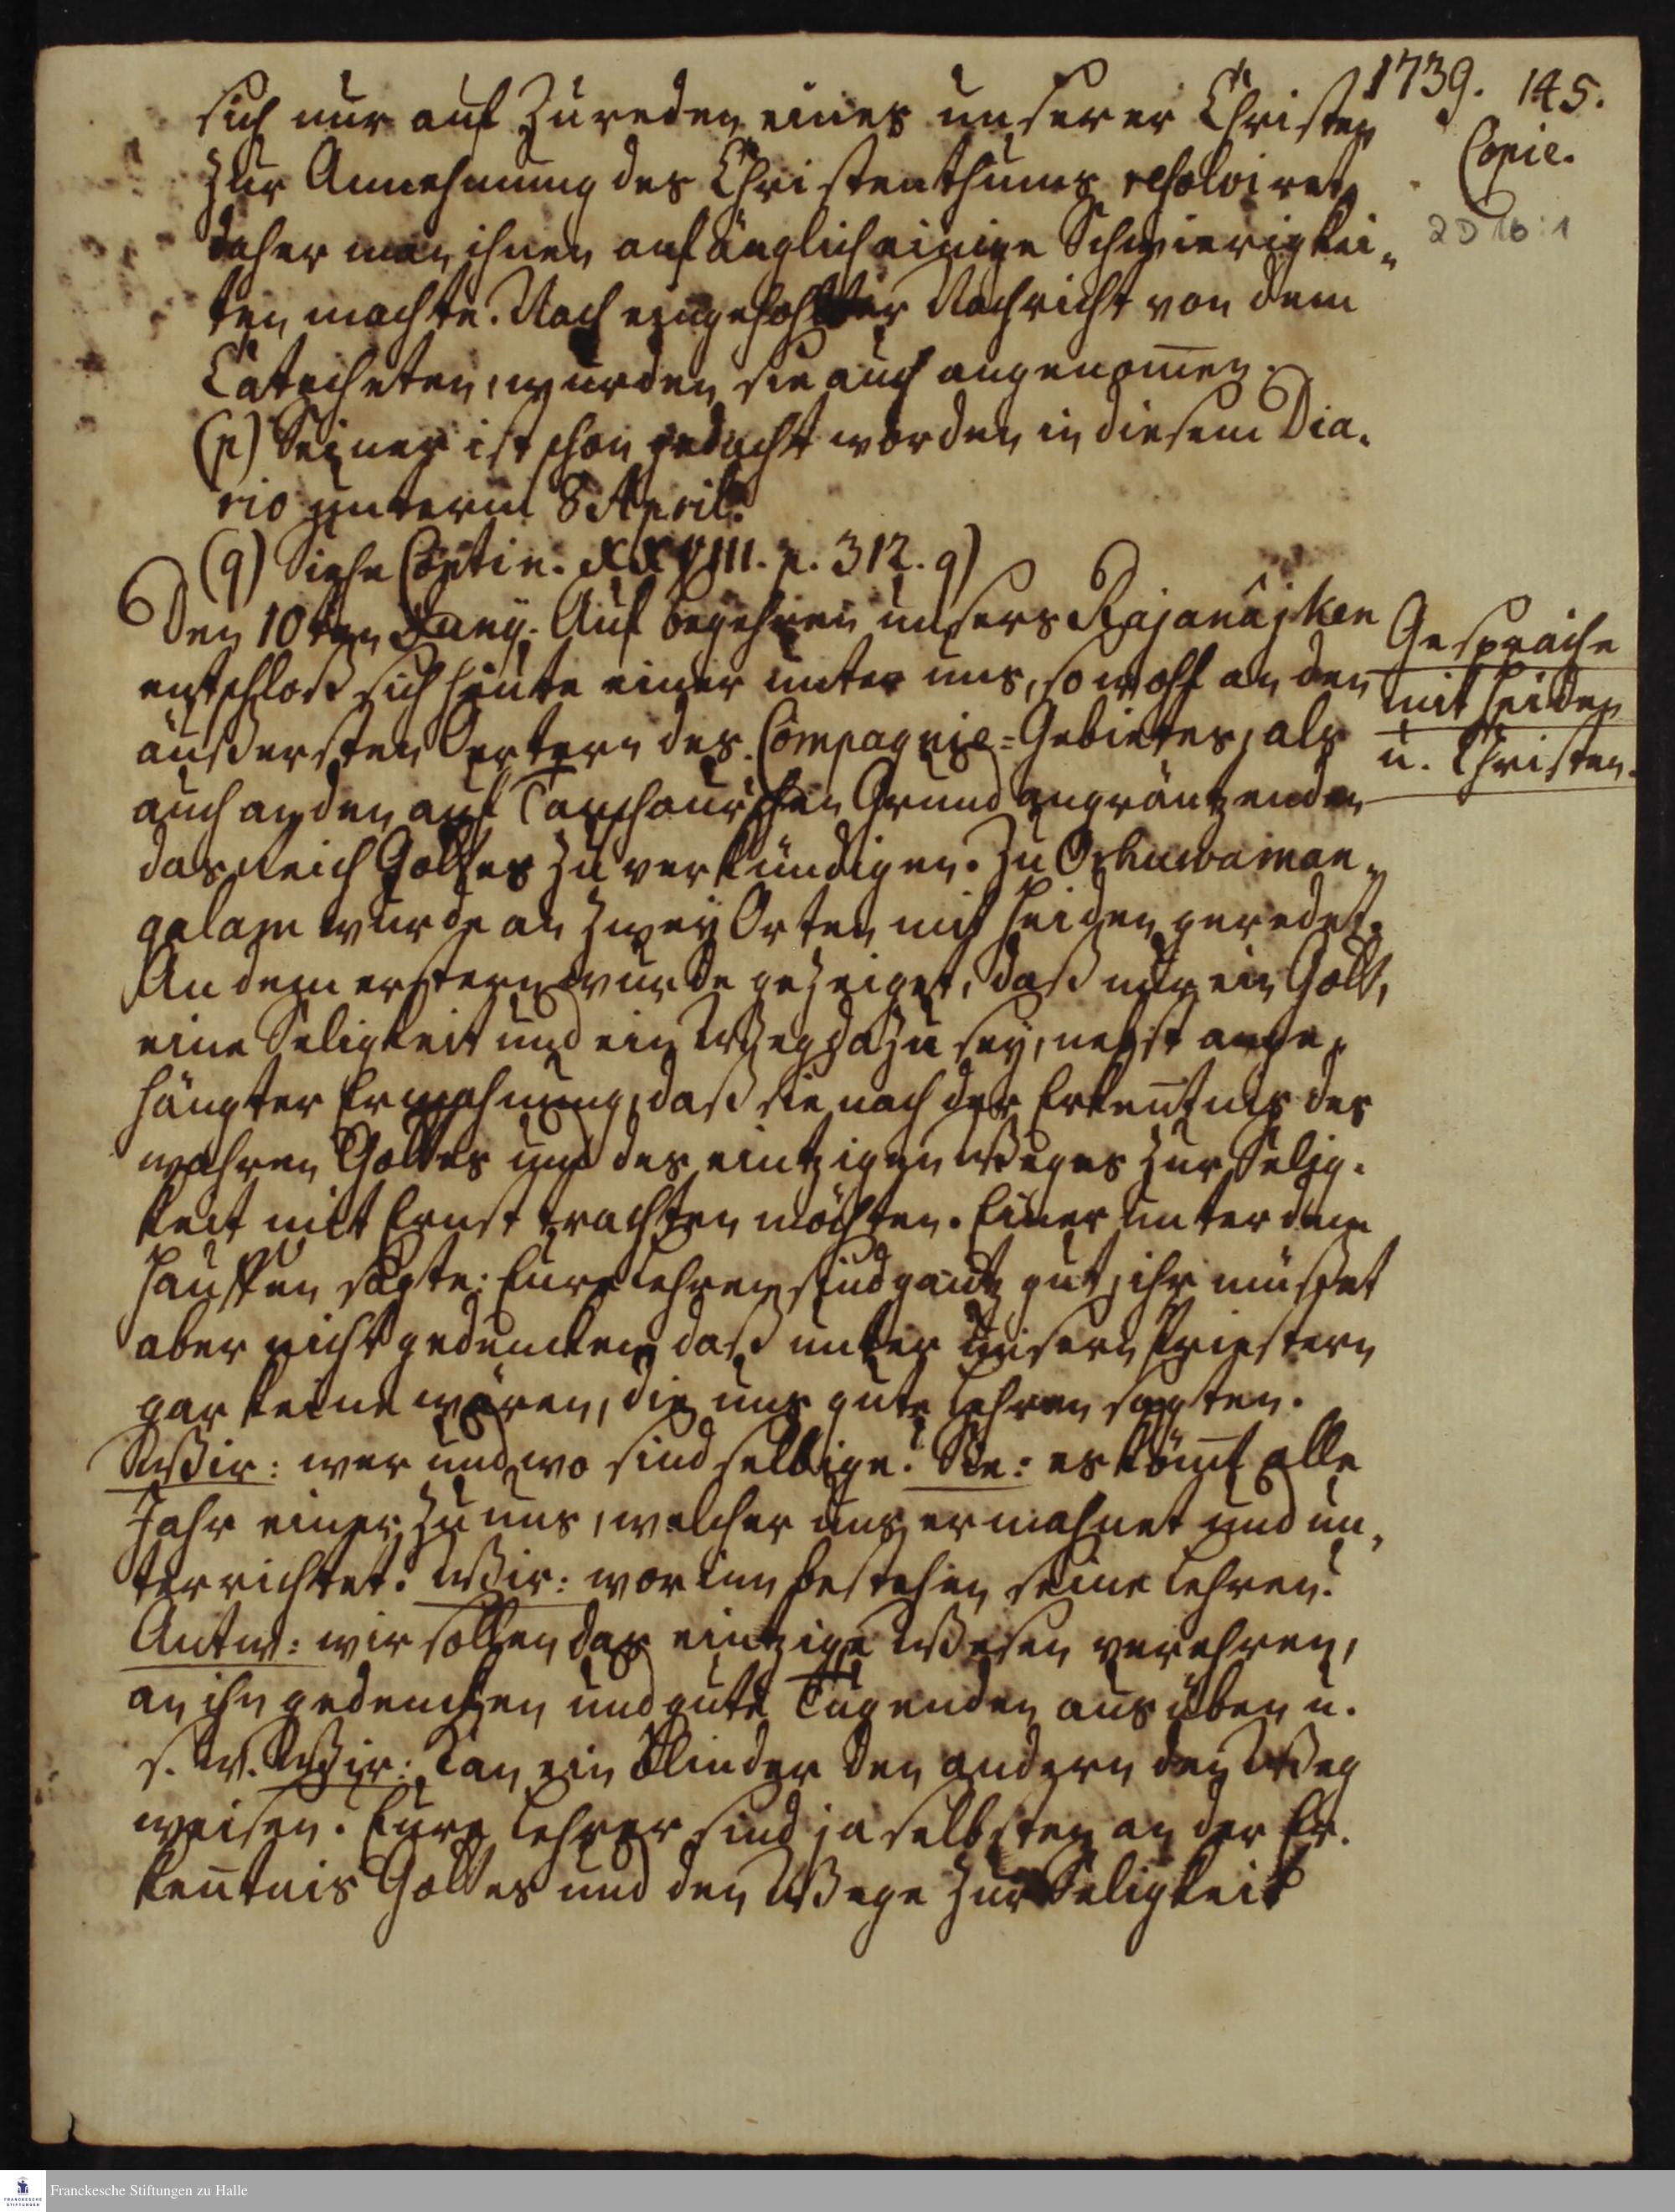 1739. 145.
Copie.
2 D 16 : 1
sich nur auf Zureden eines unserer Christen
zur Annehmung des Christenthums resolviret,
daher man ihnen anfänglich einige Schwierigkei-
ten machte. Nach eingehohlter Nachricht von dem
Catecheten, wurden sie auch angenom̅en.
(p) Seiner ist schon gedacht worden in diesem Dia-
rio unterm 8 April.
(q) Siehe Contin. XXVIII. p. 312. q)
Den 10ten Juny. Auf begehren unsers Rajanâjken
entschloß sich heute einer unter uns, so wohl an den
äußersten Oertern des Compagnie-Gebietes, als
auch an den auf Tanschaurschen Grund angräntzenden
das Reich Gottes zu verkündigen. Zu Oshuwaman-
galam wurde an zwey Orten mit Heiden geredet.
An dem erstern wurde gezeiget, daß nur ein Gott,
eine Seligkeit und ein Weg dazu sey, nebst ange-
hängter Ermahnung, daß sie nach der Erken̅tnis des
wahren Gottes und des eintzigen Weges zur Selig-
keit mit Ernst trachten möchten. Einer unter dem
Hauffen sagte: Eure Lehren sind gantz gut, ihr müßet
aber nicht gedencken, daß unter unsern Priestern
gar keine wären, die uns gute Lehren sagten.
Wir: wer und wo sind selbige? Sie: es köm̅t alle
Jahr einer zu uns, welcher uns ermahnet und un-
terrichtet. Wir: worinn bestehen seine Lehren?
Antw: wir sollen das eintzige Wesen verehren,
an ihn gedencken und gute Tugenden ausüben u.
s. w. Wir: Kan ein Blinder den andern den Weg
weisen. Eure Lehrer sind ja selbsten an der Er-
ken̅tnis Gottes und den Wege zur Seligkeit
Gespräche
mit Heiden
u. Christen.
Franckesche Stiftungen zu Halle